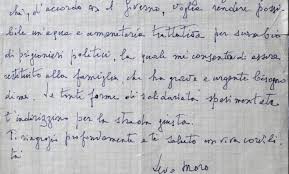 chi, d'accordo con il Governo, voglia rendere possi-
bile un'equa e umanitaria trattativa per scambio
di prigionieri politici, la quale mi consenta di essere
restituito alla famiglia, che ha grave e urgente bisogno
di me. Le tante forme di solidarietà
indirizzino per la strada giusta.
Ti ringrazio profondamente e ti saluto con viva cordiali
tà
Moro